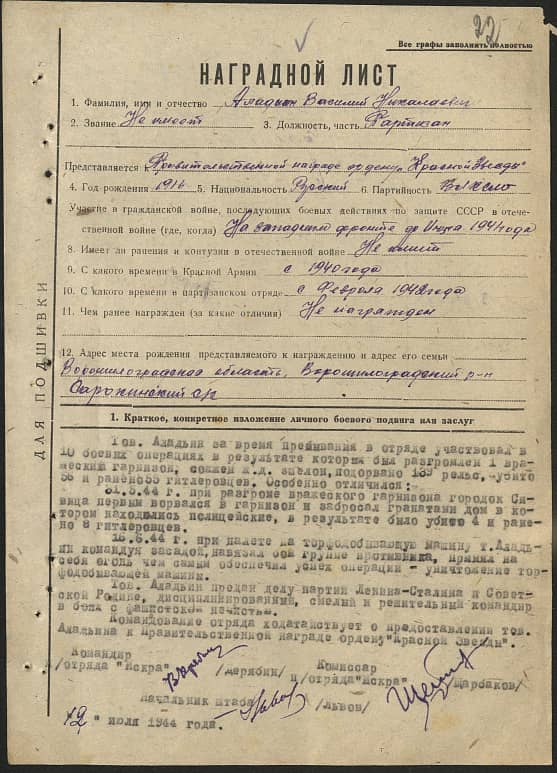 22
Все графы заполнять полностью
НАГРАДНОЙ ЛИСТ
1. Фамилия, имя и отчество Аладьин Василий Николаевич
2. Звание Не имеет 3. Должность, часть Партизан
Представляется Правительственной награде ордену "Красной Звезды"
4. Год рождения 1916 5. Национальность Русский 6. Партийность
Участие в гражданской войне, последующих боевых действиях по защите СССР в отече-
ственной войне (где, когда) На западном фронте до 1941 года
8. Имеет ли ранения и контузии в отечественной войне Не имеет
9. С какого времени в Красной Армии с 1940 года
10. С какого времени в партизанском отряде с Февраля 1942 года
11. Чем ранее награжден (за какие отличия) Не награжден
12. Адрес места рождения представляемого к награждению и адрес его семьи
Ворошилоградская область, Ворошилоградский р-н
ДЛЯ ПОДШИВКИ
1. Краткое, конкретное изложение личного боевого подвига или заслуг
Тов. Аладьин за время пребывания в отряде участвовал в
10 боевых операциях в результате которых был разгромлен 1 вра-
жеский гарнизон, сожжен ж.д. эшелон, подорвано 139 рельс, убито
56 и ранено 35 гитлеровцев. Особенно отличился:
31.5.44 г. при разгроме вражеского гарнизона городок Си-
вица первым ворвался в гарнизон и забросал гранатами дом в ко-
тором находились полицейские, в результате было убито 4 и ране-
но 8 гитлеровцев.
16.6.44 г. при налете на торфодобывающую машину т. Аладь-
ин командуя засадой, навязал бой группе противника, принял на
себя огонь чем самым обеспечил успех операции - уничтожение тор-
фодобывающей машины.
Тов. Аладьин предан делу партии Ленина-Сталина и Совет-
ской Родине, дисциплинированный, смелый и решительный командир
в боях с фашистской нечистью.
Командование отряда ходатайствует о предоставлении тов.
Аладьина к правительственной награде ордену "Красной Звезды".
Командир Комиссар
/отряда "Искра" /Дерябин/ /отряда "Искра" /Щарбаков/
Начальник штаба /Львов/
"12" июля 1944 года.